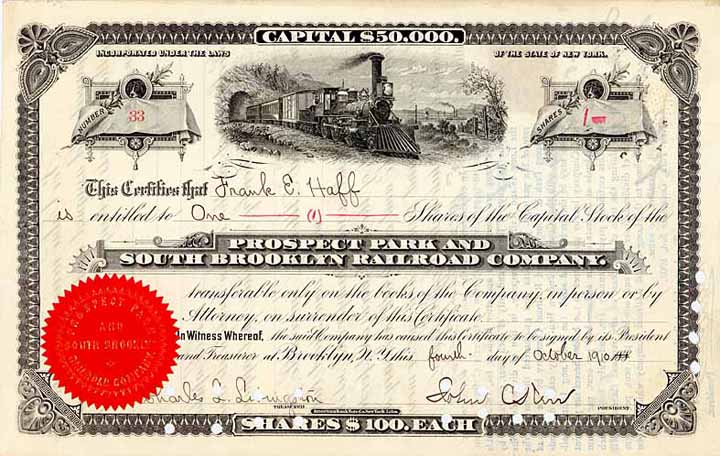 CAPITAL $50.000.
INCORPORATED UNDER THE LAWS
OF THE STATE OF NEW YORK.
NUMBER 33
SHARES 1
This Certifies that Frank E. Haff
is entitled to One (1) Shares of the Capital Stock of the
PROSPECT PARK AND
SOUTH BROOKLYN RAILROAD COMPANY.
transferable only on the books of the Company, in person or by
Attorney, on surrender of this Certificate.
In Witness Whereof, the said Company has caused this Certificate to be signed by its President
and Treasurer at Brooklyn, N.Y. this fourth day of October 1910
Charles L. Livingston
TREASURER
John
PRESIDENT.
SHARES $100. EACH
PROSPECT PARK
AND
SOUTH BROOKLYN
RAILROAD COMPANY